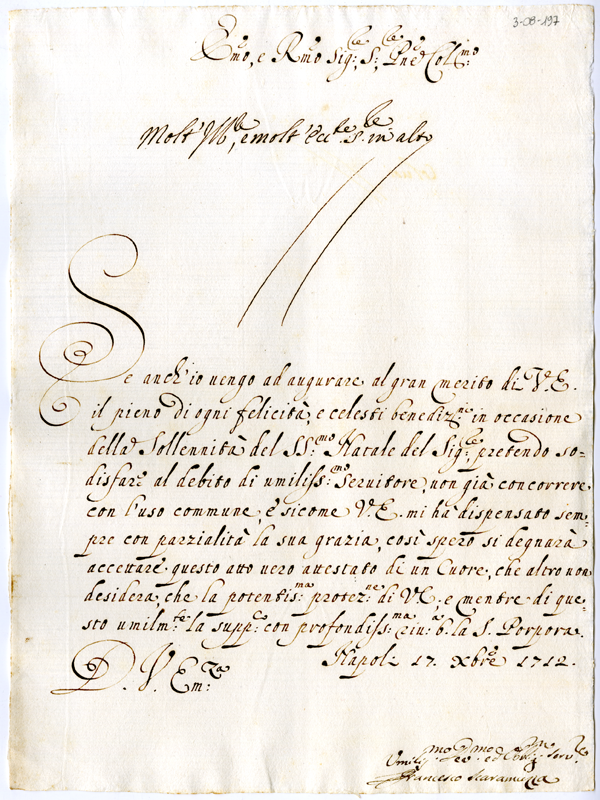 3-08-197
Em̃o, e Rm̃o Sig:re, S:re, Pne Col:mo
Molt' Ill:re, e molt' Ecc:te S:re in alto
Se anch'io uengo ad augurare al gran merito di V.E.
il pieno di ogni felicità, e celesti benediz:ne in occasione
della Sollennità del SS:mo Natale del Sig:re, pretendo so=
disfare al debito di umiliss:mo Seruitore, non già concorrere
con l'uso commune, e sicome V.E. mi hà dispensato sem,
pre con parzialità la sua grazia, così spero si degnarà
accettare questo atto uero attestato de un Cuore, che altro non
desidera, che la potentis:ma protez:ne di V.E., e mentre di que,
sto umilm:te la supp:co con profondiss:ma riu:a b. la S. Porpora.
D. V. Em:za
Napoli 17. Xbre 1712.
Umiliss:mo Deu:mo ed Oblig:mo Seru:re
Francesco Scaramuccia